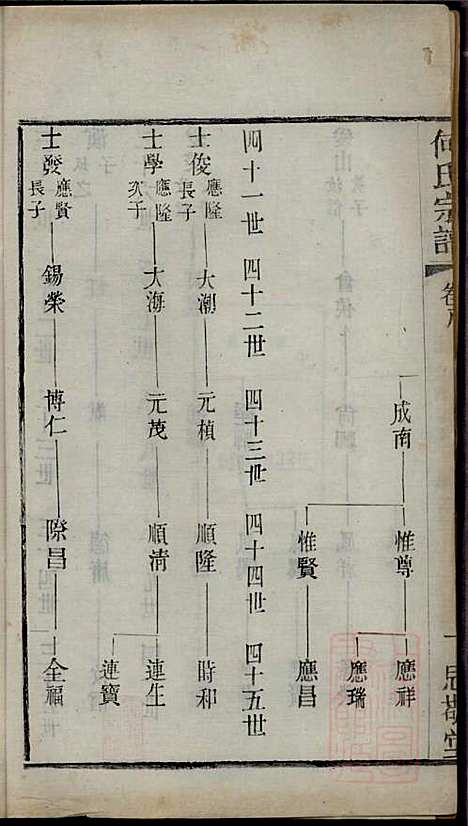 何氏宗譜
卷
一
思敬堂
成南
惟尊
應祥
應瑞
惟賢
應昌
四十一世 四十二世 四十三世 四十四世 四十五世
士俊 應隆長子 大潮 元楨 順隆 時和
士學 應隆次子 大海 元茂 順清 連生
連寶
士發 應賢長子 錫榮 博仁 際昌 全福